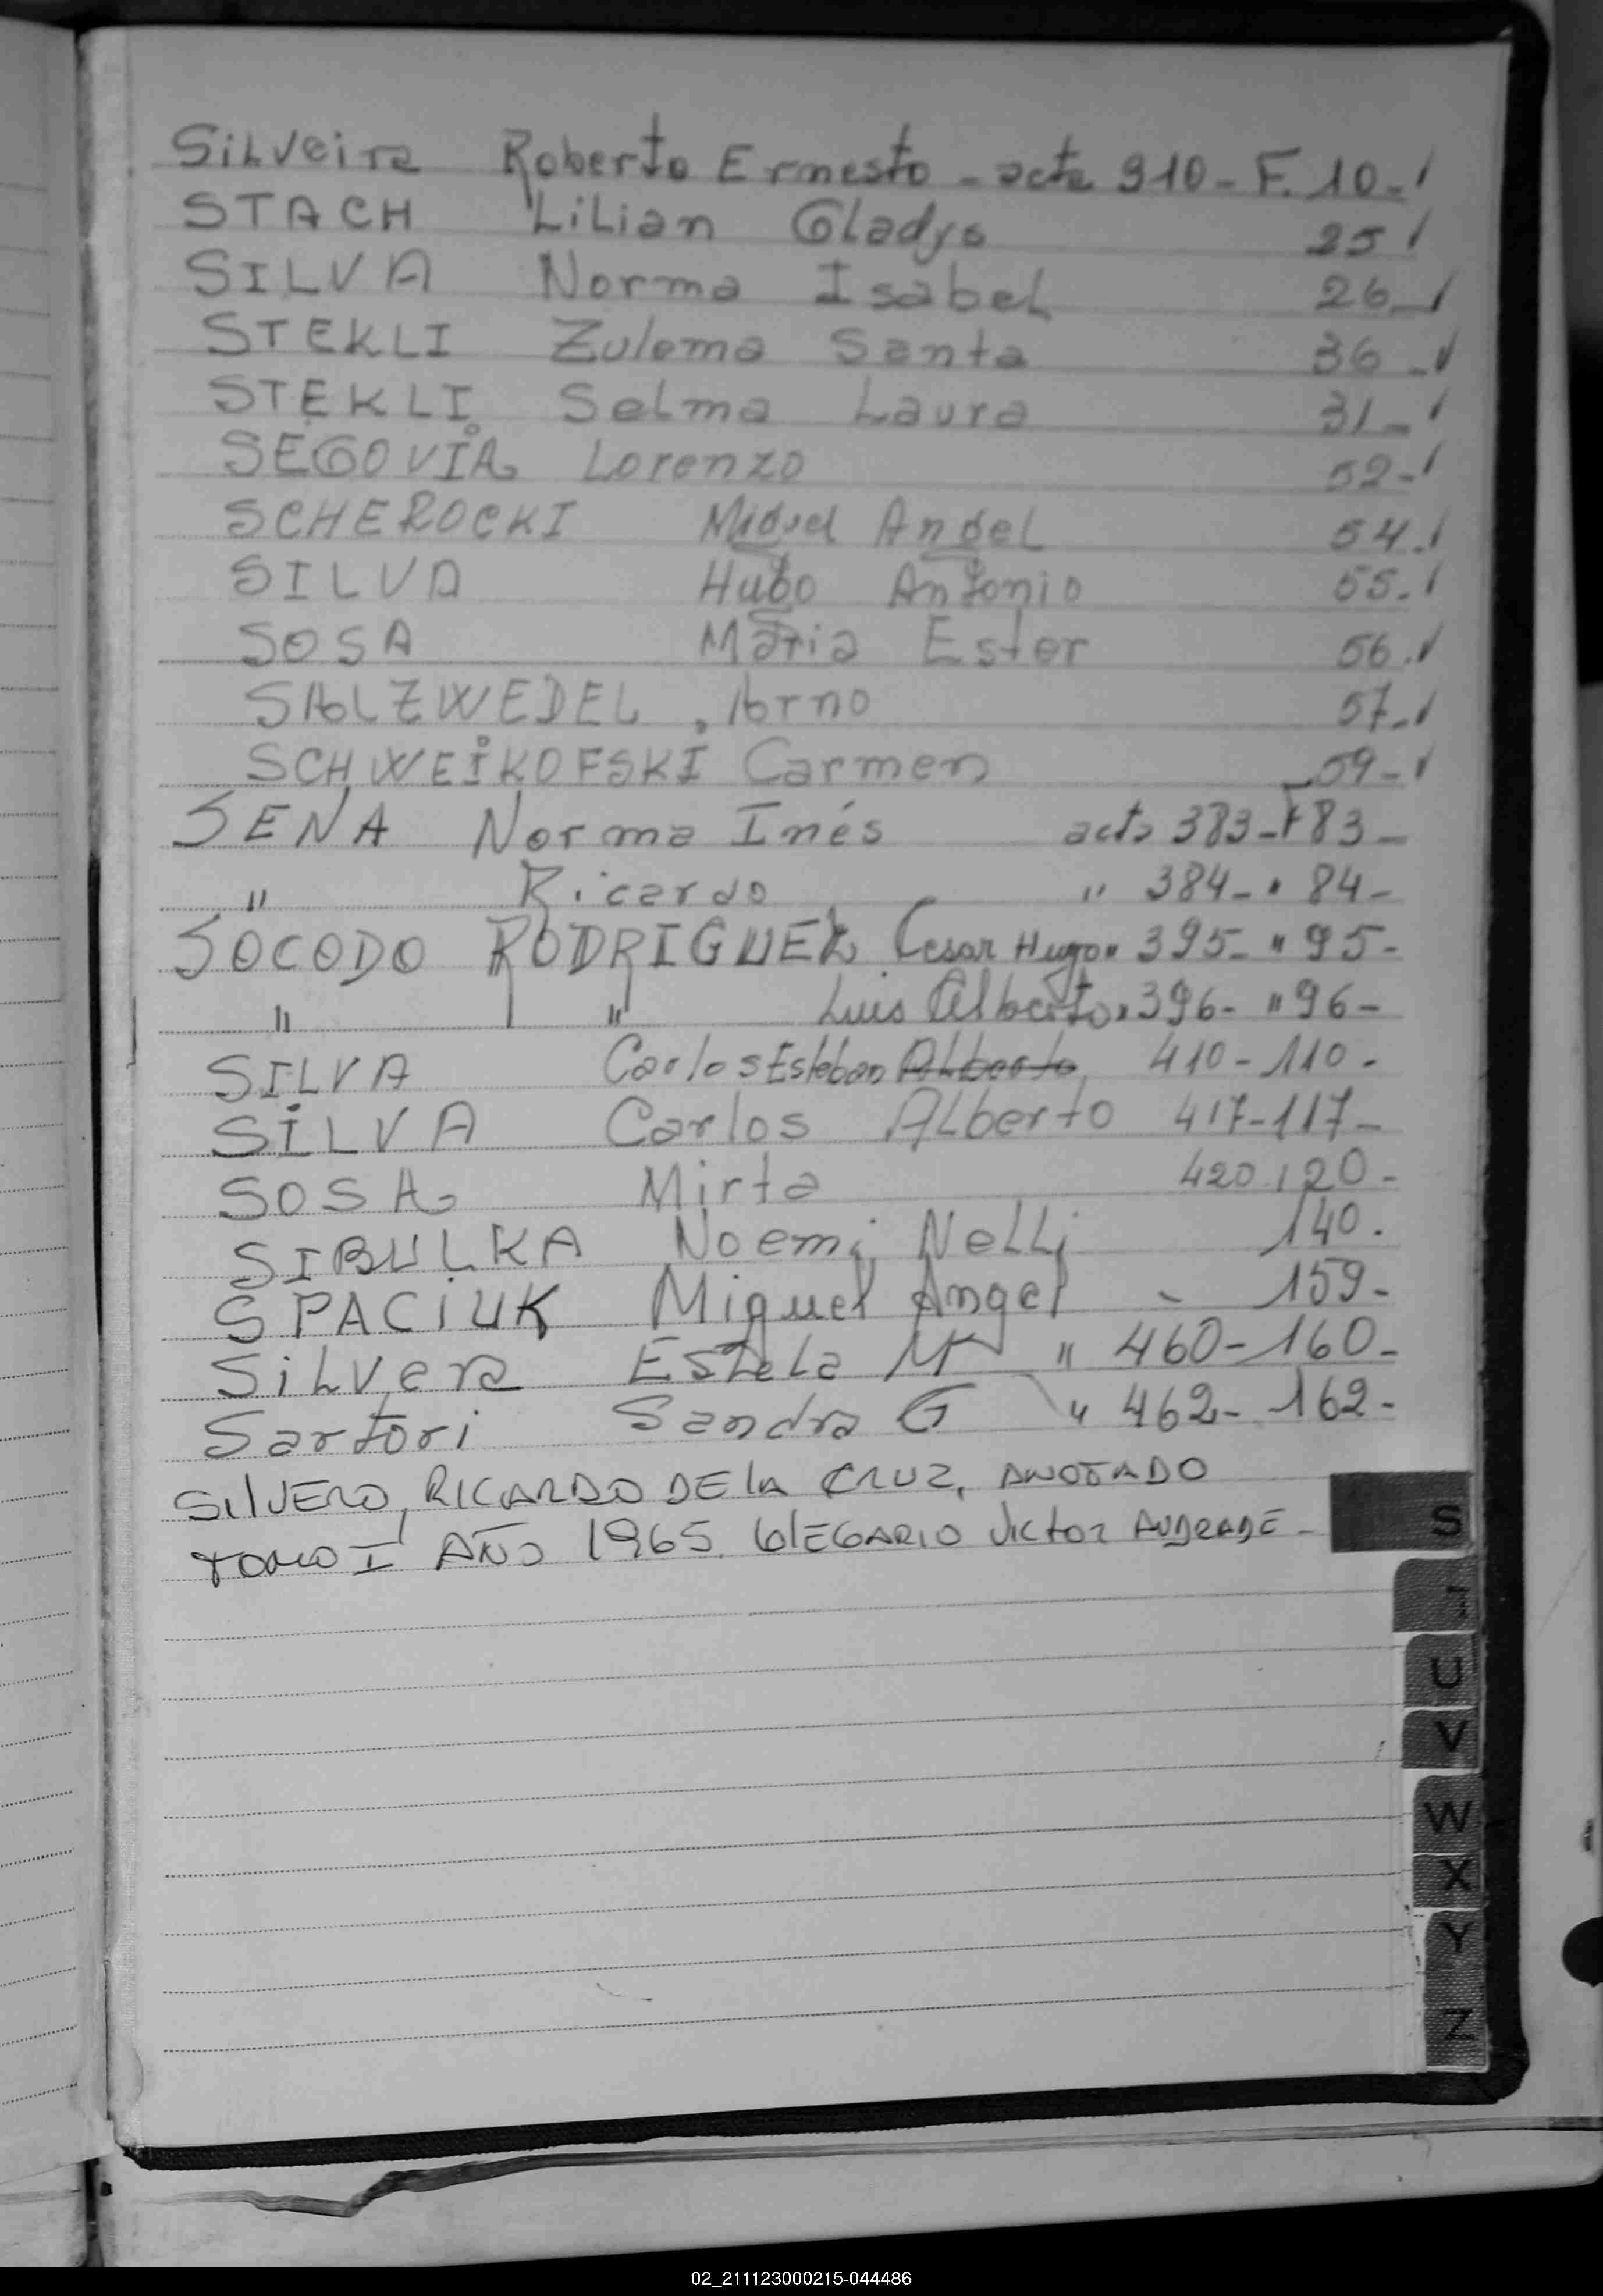 SiLVeira Roberto Ernesto - acta 910 - F. 10 -
STACH LiLian Gladys 25
SILVA Norma Isabel 26
STEKLI Zulema Santa 36
STEKLI Selma Laura 31
SEGOVIA Lorenzo 52
SCHEROCKI Miguel Angel 54
SILVA Hugo Antonio 55
SOSA Maria Ester 56
SALZWEDEL, Arno 57
SCHWEIKOFSKI Carmen 59
SENA Norma Inés acta 383 - F 83 -
" Ricardo " 384 - " 84 -
SOCODO RODRIGUEZ Cesar Hugo " 395 - " 95 -
" " Luis Alberto " 396 - " 96 -
SILVA Carlos Esteban Alberto 410 - 110 -
SILVA Carlos Alberto 417 - 117 -
SOSA Mirta 420 120 -
SIBULKA Noemi Nelli 140 .
SPACIUK Miguel Angel - 159 -
SiLVera Estela M " 460 - 160 -
Sartori Sandra G " 462 - 162 -
SilVERO, RICARDO DE la CRUZ, ANOTADO
TOMO I AÑO 1965. OlEGARIO VICTOR ANDRADE -
S
U
V
W
X
Y
Z
02_211123000215-044486